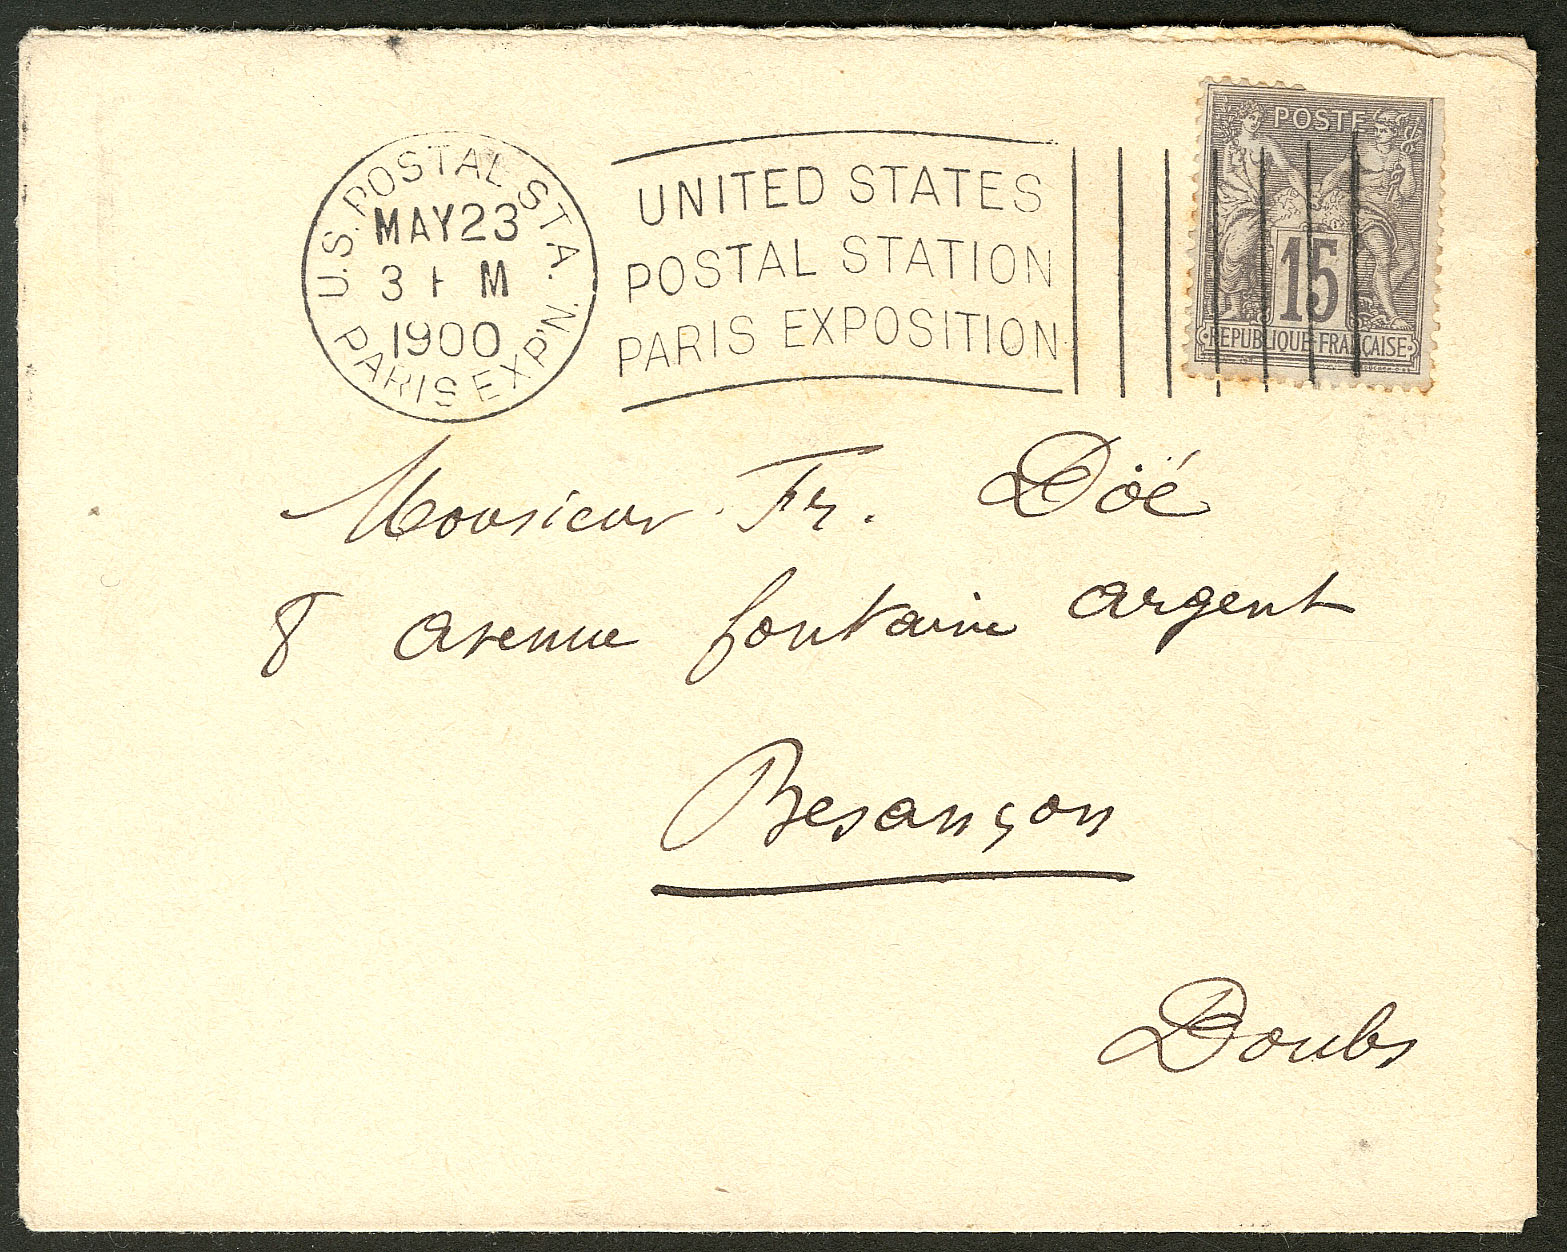 U.S. POSTAL STA. PARIS EXP'N.
MAY 23
3 M
1900
UNITED STATES
POSTAL STATION
PARIS EXPOSITION
POSTE
15
REPUBLIQUE FRANÇAISE
Monsieur Fr. Döé
8 avenue fontaine argent
Besançon
Doubs